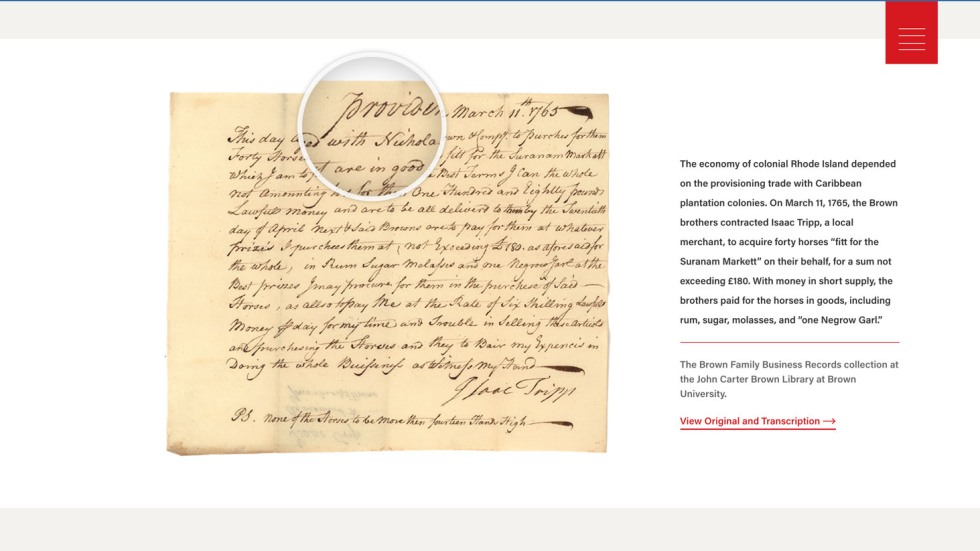 Providen March 11th 1765
This day ed with Nichola wn & Compy. to purches for them
Forty Horses fitt for the Suranam Markett
which I am to are in good & Best Terms I Can the whole
not amounting for them One Hundred and Eightty pounds
Lawfull money and are to be all deliverd to them by the Twentieth
day of April next & Said Browns are to pay for them at whatever
prizes I purchees them at, not Exceeding £180. as aforesaid for
the whole, in Rum Sugar Malasses and one Negrow Garl at the
Best prizses I may procure for them in the purchese of Said
Horses, as allso to pay Me at the Rate of Six Shilling Lawfull
Money ⅌ day for my time and Trouble in Selling these Articls
and purchesing the Horses and they to Bair my Expencis in
Doing the whole Buissiness as Witness my Hand
Isaac Tripp
PS. none of the Horses to be more then fourteen Hands High
The economy of colonial Rhode Island depended
on the provisioning trade with Caribbean
plantation colonies. On March 11, 1765, the Brown
brothers contracted Isaac Tripp, a local
merchant, to acquire forty horses “fitt for the
Suranam Markett” on their behalf, for a sum not
exceeding £180. With money in short supply, the
brothers paid for the horses in goods, including
rum, sugar, molasses, and “one Negrow Garl.”
The Brown Family Business Records collection at
the John Carter Brown Library at Brown
University.
View Original and Transcription →